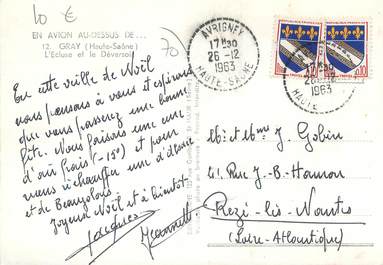 10 €
70
EN AVION AU-DESSUS DE...
12. GRAY (Haute-Saône)
L'Ecluse et le Déversoir
En cette veille de Noël
nous pensons à vous et espérons
que vous passerez une bonne
fête. Nous faisons une cure
d'air frais (-15°) et pour
nous réchauffer une d'alsace
et de Beaujolais.
Joyeux Noël et à bientôt
Jacques Jeannette
AVRIGNEY
17H30
26-12
1963
HAUTE-SAONE
17H30
26-12
1963
HAUTE
0,10
M. et Mme J. Gobin
41. Rue J.-B-Hamon
Rezé-lès-Nantes
(Loire-Atlantique)